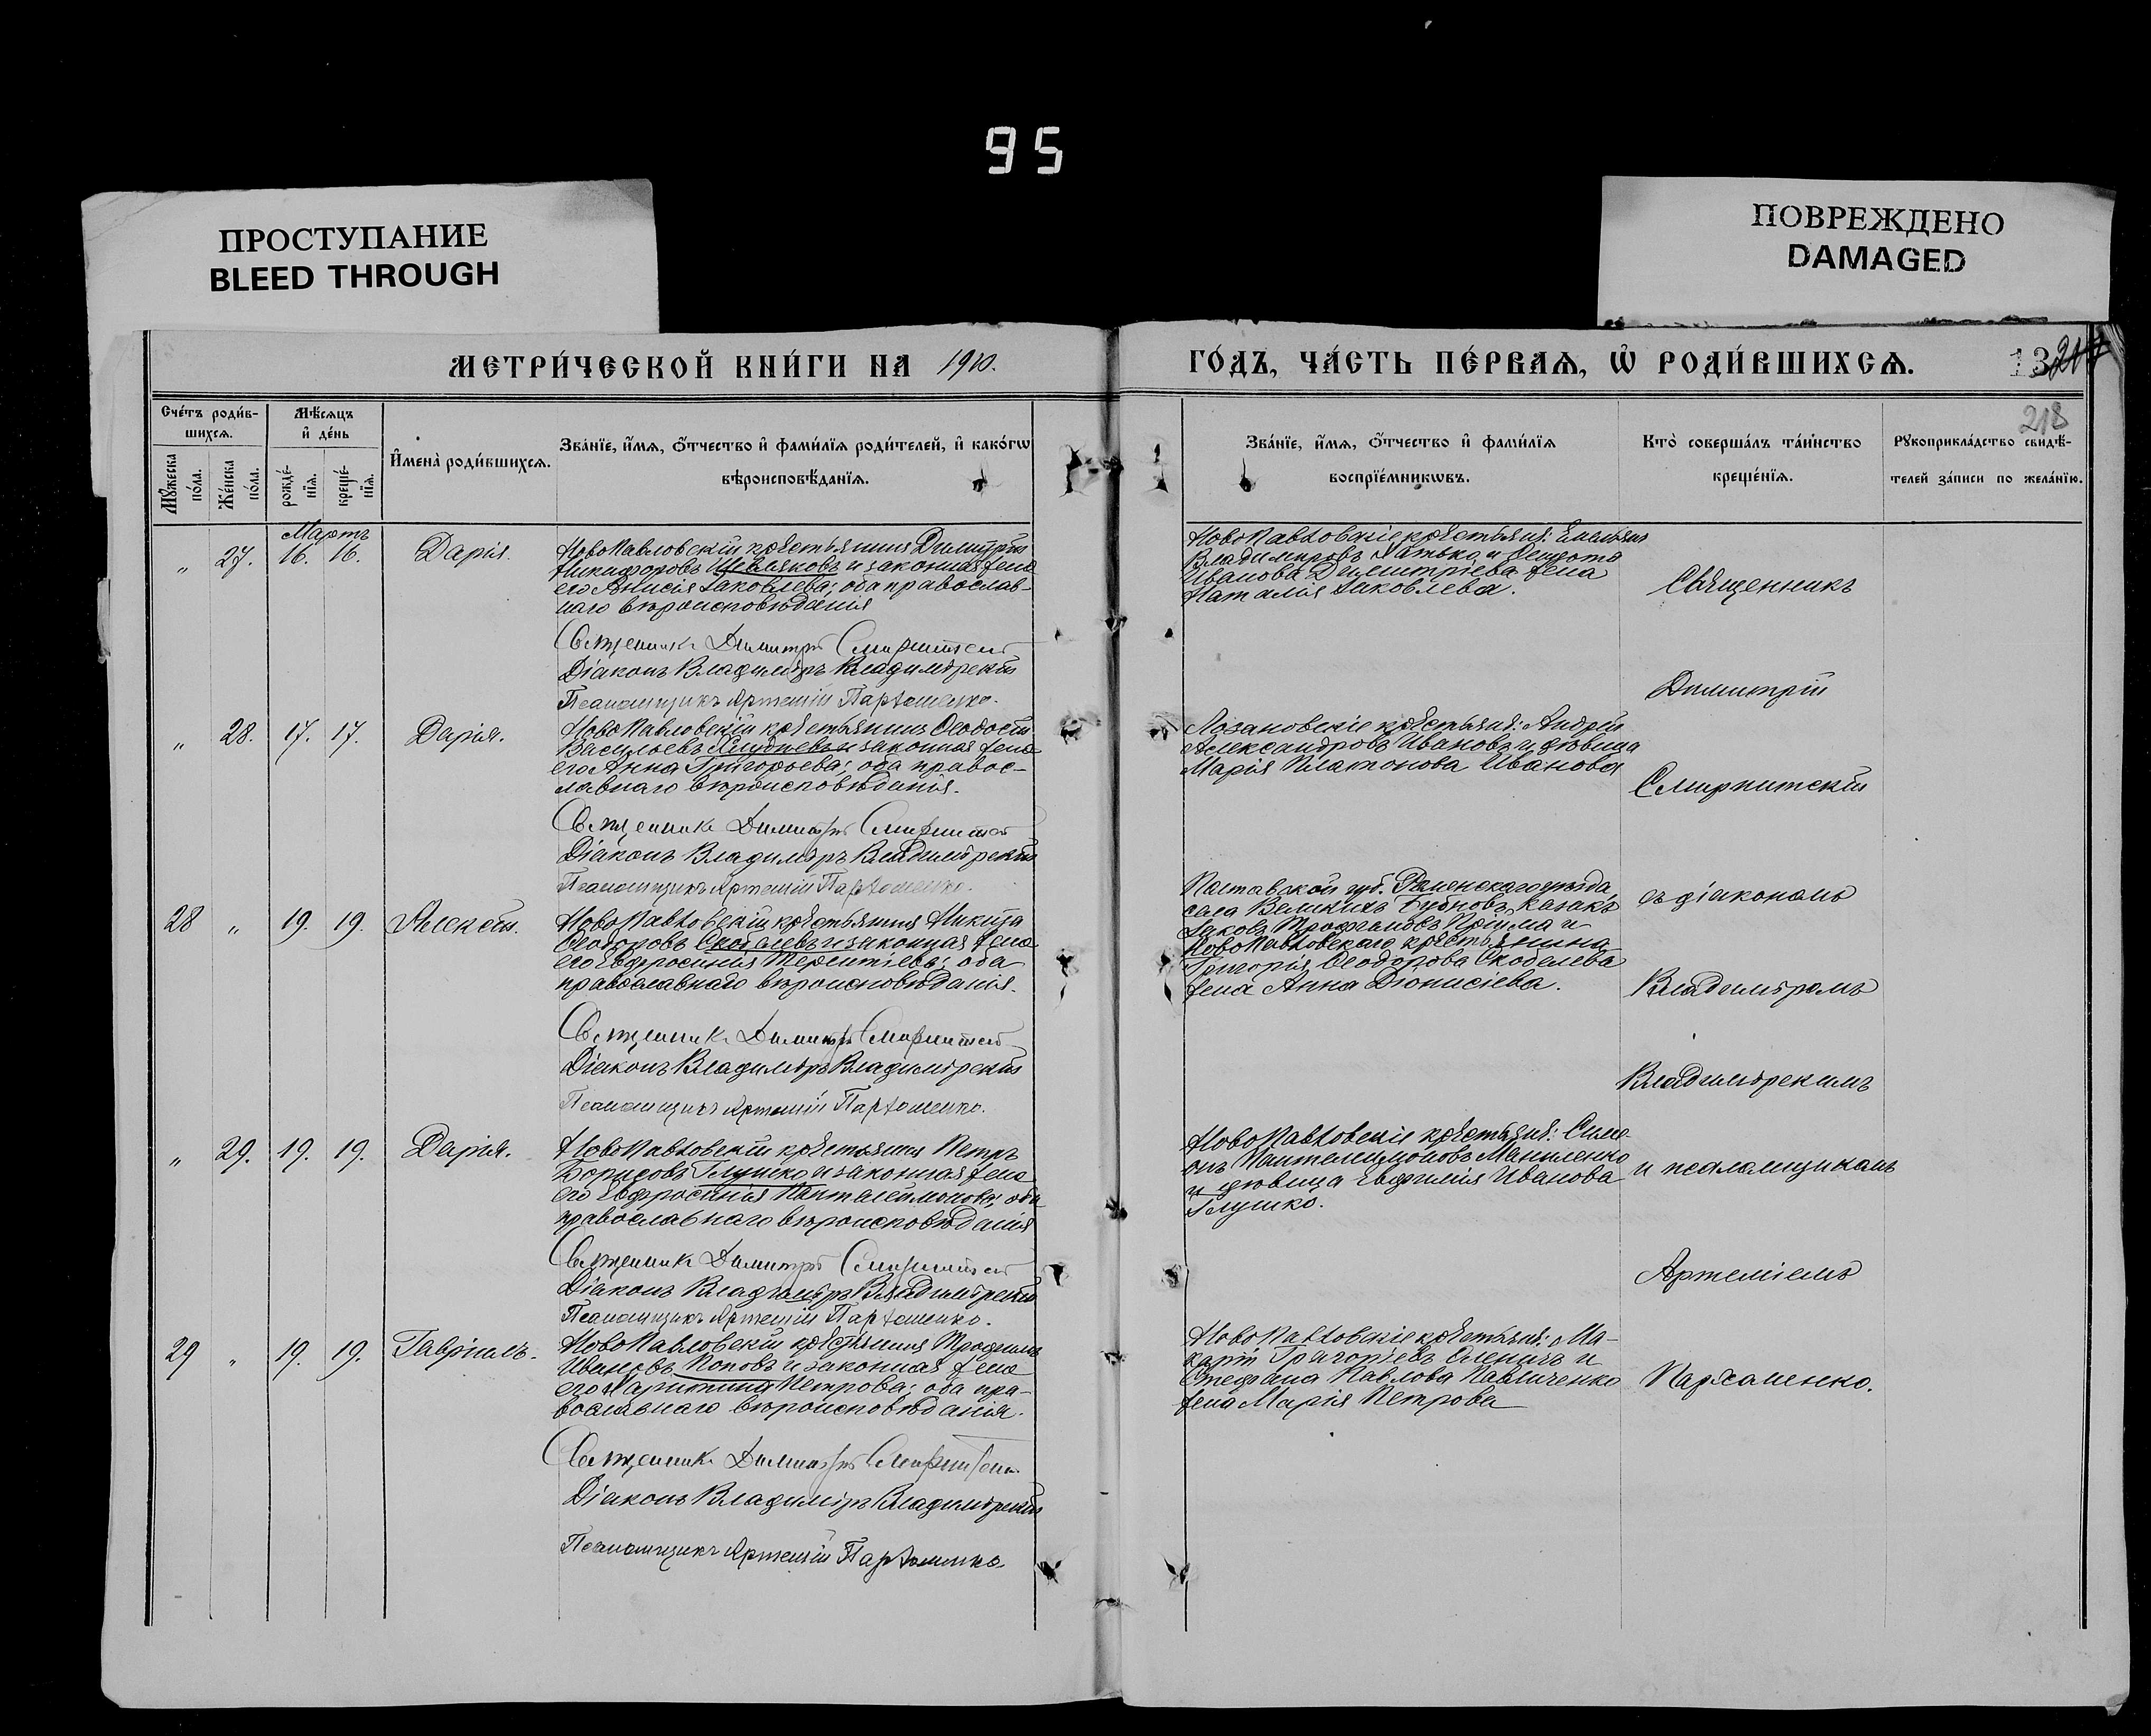 95
ПРОСТУПАНИЕ
BLEED THROUGH
ПОВРЕЖДЕНО
DAMAGED
МЕТРИ́ЧЕСКОЙ КНИ́ГИ НА 1910.
ГО́ДЪ, ЧА́СТЬ ПЕ́РВАѦ, Ѡ҆ РОДИ́ВШИХСѦ.
218
Сче́тъ роди́в-
шихсѧ.
Мѣ́сѧцъ
и҆ де́нь
Мꙋ́жеска
по́ла.
Же́нска
по́ла.
рожде́-
нїѧ.
креще́-
нїѧ.
И҆мена̀ роди́вшихсѧ.
Зва́нїе, и҆́мѧ, ѻ҆́тчество и҆ фами́лїѧ роди́телей, и҆ како́гѡ
вѣроисповѣ́данїѧ.
Зва́нїе, и҆́мѧ, ѻ҆́тчество и҆ фами́лїѧ
воспрїе́мникѡвъ.
Кто̀ соверша́лъ та́инство
креще́нїѧ.
Рꙋкоприкла́дство свидѣ́-
телей за́писи по жела́нїю.
Мартъ
„ 27. 16. 16. Дарія.
НовоПавловскій крестьянинъ Димитрій
Никифоровъ Шевляковъ и законная жена
его Анисія Іаковлева; оба православ-
наго вѣроисповѣданія
Священникъ Димитрій Смирнитскій
Діаконъ Владиміръ Владимірскій
Псаломщикъ Артемій Пархоменко.
НовоПавловскіе крестьяне: Емельянъ
Владимировъ и Федота
Иванова Димитріева жена
Наталія Іаковлева.
„ 28. 17. 17. Дарія.
НовоПавловскій крестьянинъ Ѳеодосій
Васильевъ и законная жена
его Анна Григорьева; оба правос-
лавнаго вѣроисповѣданія.
Священникъ Димитрій Смирнитскій
Діаконъ Владиміръ Владимірскій
Псаломщикъ Артемій Пархоменко.
Лозановскіе крестьяне: Андрей
Александровъ Ивановъ и дѣвица
Марія Платонова Иванова
28 „ 19. 19. Алексѣй.
НовоПавловскій крестьянинъ Никита
Ѳеодоровъ Скобелевъ и законная жена
его Евфросинія Терентіева; оба
православнаго вѣроисповѣданія.
Священникъ Димитрій Смирнитскій
Діаконъ Владиміръ Владимірскій
Псаломщикъ Артемій Пархоменко.
Полтавской губ. Роменскаго уѣзда,
села Великихъ Бубновъ, казакъ
Іаковъ Трофимовъ Пріима и
НовоПавловскаго крестьянина
Григорія Ѳеодорова Скобелева
жена Анна Діонисіева.
„ 29. 19. 19. Дарія.
НовоПавловскій крестьянинъ Петръ
Борисовъ Глушко и законная жена
его Евфросинія Пантелеимонова; оба
православнаго вѣроисповѣданія
Священникъ Димитрій Смирнитскій
Діаконъ Владиміръ Владимірскій
Псаломщикъ Артемій Пархоменко.
НовоПавловскіе крестьяне: Симе-
онъ Пантелеимоновъ Маниленко
и дѣвица Евфимія Иванова
Глушко.
29 „ 19. 19. Гавріилъ.
НовоПавловскій крестьянинъ Трофимъ
Ивановъ Поповъ и законная жена
его Харитина Петрова; оба пра-
вославнаго вѣроисповѣданія.
Священникъ Димитрій Смирнитскій
Діаконъ Владиміръ Владимірскій
Псаломщикъ Артемій Пархоменко.
НовоПавловскіе крестьяне: Ма-
карій Григоріевъ Оленичъ и
Стефана Павлова Павличенко
жена Марія Петрова
Священникъ
Димитрій
Смирнитскій
съ діакономъ
Владиміромъ
Владимірскимъ
и псаломщикомъ
Артеміемъ
Пархоменко.